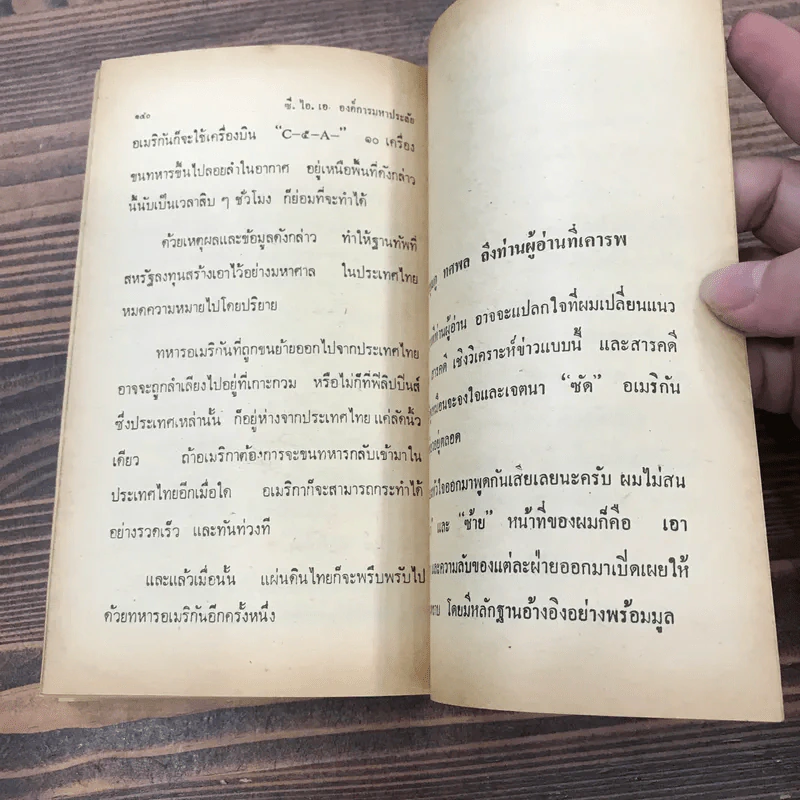 ๑๔๐ ซี. ไอ. เอ. องค์การมหาประลัย
อเมริกันก็จะใช้เครื่องบิน “C-๕-A-” ๑๐ เครื่อง
ขนทหารขึ้นไปลอยลำในอากาศ อยู่เหนือพื้นที่ดังกล่าว
นี้นับเป็นเวลาสิบ ๆ ชั่วโมง ก็ย่อมที่จะทำได้
ด้วยเหตุผลและข้อมูลดังกล่าว ทำให้ฐานทัพที่
สหรัฐลงทุนสร้างเอาไว้อย่างมหาศาล ในประเทศไทย
หมดความหมายไปโดยปริยาย
ทหารอเมริกันที่ถูกขนย้ายออกไปจากประเทศไทย
อาจจะถูกลำเลียงไปอยู่ที่เกาะกวม หรือไม่ก็ที่ฟิลิปปินส์
ซึ่งประเทศเหล่านั้น ก็อยู่ห่างจากประเทศไทยแค่ลัดนิ้ว
เดียว ถ้าอเมริกาต้องการจะขนทหารกลับเข้ามาใน
ประเทศไทยอีกเมื่อใด อเมริกาก็จะสามารถกระทำได้
อย่างรวดเร็ว และทันท่วงที
และแล้วเมื่อนั้น แผ่นดินไทยก็จะพรึบพรับไป
ด้วยทหารอเมริกันอีกครั้งหนึ่ง
ทศพล ถึงท่านผู้อ่านที่เคารพ
ท่านผู้อ่าน อาจจะแปลกใจที่ผมเปลี่ยนแนว
สารคดี เชิงวิเคราะห์ข่าวแบบนี้ และสารคดี
เหมือนจะจงใจและเจตนา “ซัด” อเมริกัน
อยู่ตลอด
ใจออกมาพูดกันเสียเลยนะครับ ผมไม่สน
และ “ซ้าย” หน้าที่ของผมก็คือ เอา
และความลับของแต่ละฝ่ายออกมาเปิดเผยให้
โดยมีหลักฐานอ้างอิงอย่างพร้อมมูล